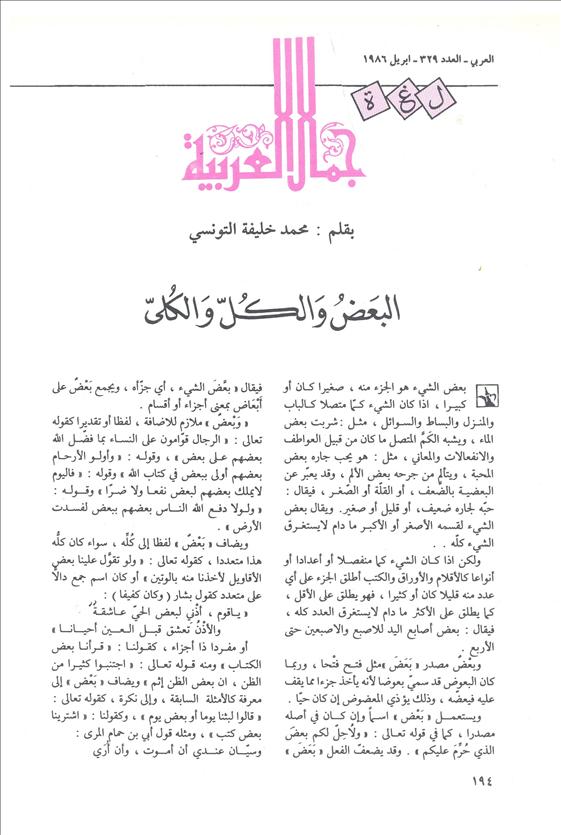 العربي - العدد ٣٢٩ - ابريل ١٩٨٦
لغة
جمال العربية
بقلم : محمد خليفة التونسي
البَعَضُ وَالكُلّ وَالكُليّ
بعض الشيء هو الجزء منه ، صغيرا كان أو
كبيرا ، اذا كان الشيء كمّا متصلا كالباب
والمنزل والبساط والسوائل ، مثل : شربت بعض
الماء ، ويشبه الكَمَّ المتصل ما كان من قبيل العواطف
والانفعالات والمعاني ، مثل : هو يحب جاره بعض
المحبة ، ويتألم من جرحه بعض الألم ، وقد يعبّر عن
البعضية بالضّعف ، أو القلّة أو الصّغر ، فيقال :
حبّه لجاره ضعيف ، أو قليل أو صغير. ويقال بعض
الشيء لقسمه الأصغر أو الأكبر ما دام لايستغرق
الشيء كلّه . .
ولكن اذا كان الشيء كما منفصلا أو أعدادا أو
أنواعا كالأقلام والأوراق والكتب أطلق الجزء على أي
عدد منه قليلا كان أو كثيرا ، فهو يطلق على الأقل ،
كما يطلق على الأكثر ما دام لايستغرق العدد كله ،
فيقال : بعض أصابع اليد للاصبع والاصبعين حتى
الأربع .
وبعضٌ مصدر « بَعَضَ » مثل فتح فتْحا ، وربما
كان البعوض قد سميّ بعوضا لأنه يأخذ جزءا مما يقف
عليه فيعضّه ، وذلك يؤذي المعضوض إن كان حيّا .
ويستعمل « بَعْض » اسماً وإن كان في أصله
مصدرا ، كما في قوله تعالى : « ولأحِلَّ لكم بعضَ
الذي حُرِّمَ عليكم » . وقد يضعفّ الفعل « بَعَضَ »
فيقال « بعَّضَ الشيء ، أي جزّأه ، ويجمع بَعْضٌ على
أبْعَاض بمعنى أجزاء أو أقسام .
« وَبَعْضٌ » ملازم للاضافة ، لفظا أو تقديرا كقوله
تعالى : « الرجال قوّامون على النساء بما فضّل الله
بعضهم على بعض » ، وقوله : « وأولو الأرحام
بعضهم أولى ببعض في كتاب الله » وقوله : « فاليوم
لايملك بعضهم لبعض نفعا ولا ضرّا » وقوله :
« ولولا دفع الله الناس بعضهم ببعض لفسدت
الأرض » .
ويضاف « بَعْضٌ » لفظا إلى كُلِّه ، سواء كان كلُّه
هذا متعددا ، كقوله تعالى : « ولو تقوَّل علينا بعض
الأقاويل لأخذنا منه بالوتين » أو كان اسم جمع دالًّا
على متعدد كقول بشار ( وكان كفيفا ) :
« ياقوم ، أذْني لبعض الحيّ عاشقةٌ
والأذْنُ تعشق قبل العين أحيانا »
أو مفردا ذا أجزاء ، كقولنا : « قرأنا بعض
الكتاب » ومنه قوله تعالى : « اجتنبوا كثيرا من
الظن ، ان بعض الظن إثم » ويضاف « بَعْض » إلى
معرفة كالأمثلة السابقة ، وإلى نكرة ، كقوله تعالى :
« قالوا لبثنا يوما أو بعض يوم » ، وكقولنا : « اشترينا
بعض كتب » ، ومثله قول أبي بن حمام المرى :
وسيّان عندي أن أموت ، وأن أُرَي
١٩٤